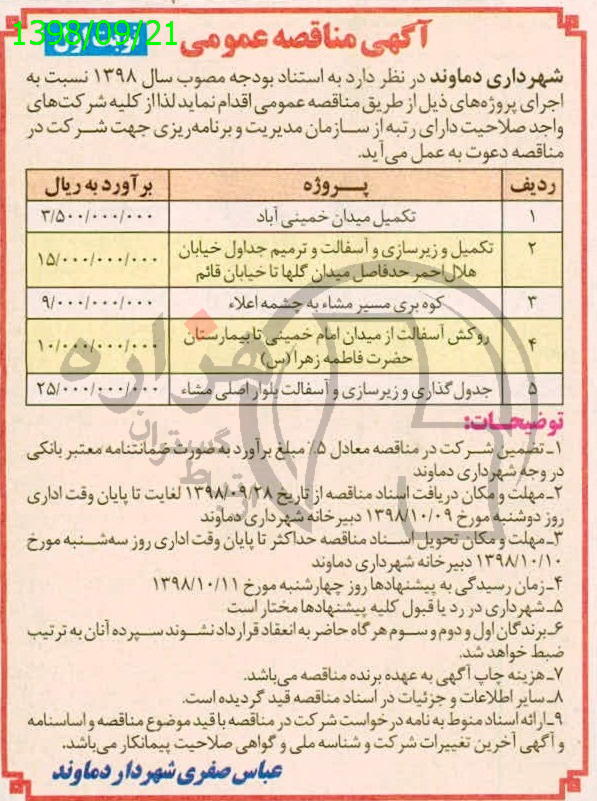 آگهی مناقصه عمومی
1398/09/21
شهرداری دماوند در نظر دارد به استناد بودجه مصوب سال ۱۳۹۸ نسبت به
اجرای پروژه‌های ذیل از طریق مناقصه عمومی اقدام نماید لذا از کلیه شرکت‌های
واجد صلاحیت دارای رتبه از سازمان مدیریت و برنامه‌ریزی جهت شرکت در
مناقصه دعوت به عمل می‌آید.
ردیف پروژه برآورد به ریال
۱ تکمیل میدان خمینی آباد ۳/۵۰۰/۰۰۰/۰۰۰
۲ تکمیل و زیرسازی و آسفالت و ترمیم جداول خیابان
هلال‌احمر حدفاصل میدان گلها تا خیابان قائم ۱۵/۰۰۰/۰۰۰/۰۰۰
۳ کوه‌بری مسیر مشاء به چشمه اعلاء ۹/۰۰۰/۰۰۰/۰۰۰
۴ روکش آسفالت از میدان امام خمینی تا بیمارستان
حضرت فاطمه زهرا (س) ۱۰/۰۰۰/۰۰۰/۰۰۰
۵ جدول‌گذاری و زیرسازی و آسفالت بلوار اصلی مشاء ۲۵/۰۰۰/۰۰۰/۰۰۰
توضیحات:
۱ـ تضمین شرکت در مناقصه معادل ۵٪ مبلغ برآورد به صورت ضمانتنامه معتبر بانکی
در وجه شهرداری دماوند
۲ـ مهلت و مکان دریافت اسناد مناقصه از تاریخ ۱۳۹۸/۰۹/۲۸ لغایت تا پایان وقت اداری
روز دوشنبه مورخ ۱۳۹۸/۱۰/۰۹ دبیرخانه شهرداری دماوند
۳ـ مهلت و مکان تحویل اسناد مناقصه حداکثر تا پایان وقت اداری روز سه‌شنبه مورخ
۱۳۹۸/۱۰/۱۰ دبیرخانه شهرداری دماوند
۴ـ زمان رسیدگی به پیشنهادها روز چهارشنبه مورخ ۱۳۹۸/۱۰/۱۱
۵ـ شهرداری در رد یا قبول کلیه پیشنهادها مختار است
۶ـ برندگان اول و دوم و سوم هرگاه حاضر به انعقاد قرارداد نشوند سپرده آنان به ترتیب
ضبط خواهد شد.
۷ـ هزینه چاپ آگهی به عهده برنده مناقصه می‌باشد.
۸ـ سایر اطلاعات و جزئیات در اسناد مناقصه قید گردیده است.
۹ـ ارائه اسناد منوط به نامه درخواست شرکت در مناقصه با قید موضوع مناقصه و اساسنامه
و آگهی آخرین تغییرات شرکت و شناسه ملی و گواهی صلاحیت پیمانکار می‌باشد.
عباس صفری شهردار دماوند
هزاره
گستران